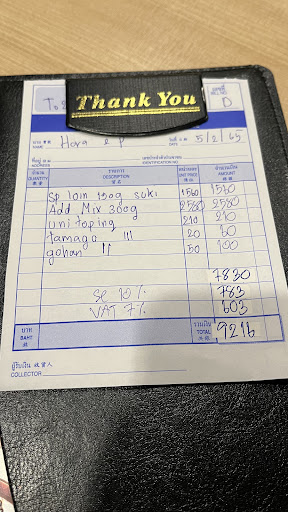 Thank You
D
นาม NAME Hara 2 P วันที่ DATE 5/2/65
ที่อยู่
เลขประจำตัวผู้เสียภาษีอากร
IDENTIFICATION NO.
จำนวน QUANTITY รายการ DESCRIPTION หน่วยละ UNIT PRICE จำนวนเงิน AMOUNT
Sp loin 150g suki 1580
Add Mix 300g 2580 2580
uni toping 210 210
Tamago III 20 60
gohan II 50 100
7830
SC 10% 783
VAT 7% 603
บาท BAHT รวมเงิน TOTAL 9216
ผู้รับเงิน
COLLECTOR